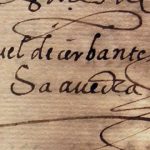 uel de cerbante
Saauedra